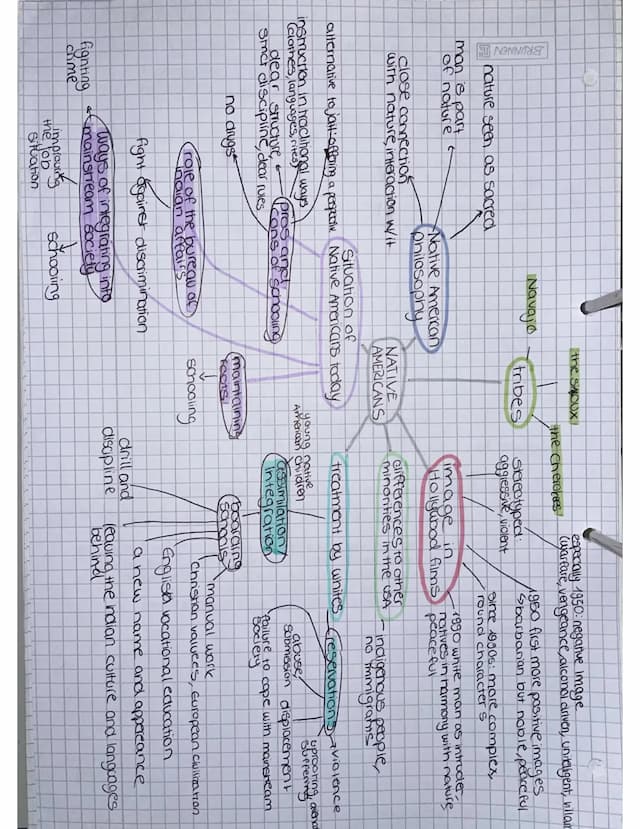 BRUNNEN
NATIVE
AMERICANS
Native American
Philosophy
nature seen as sacred
man is part
of nature
close connection
with nature, interaction w/it
tribes
Navajo
the Sioux
the Cherokee
image in
Hollywood films
stereotyped:
aggressive, violent
especially 1950: negative image
(warfare, vengeance, alcohol driven, unintelligent, villain
1950 first more positive images
barbarian but noble, peaceful
since 1990s: more complex,
round characters
1990 white man as intruder,
natives in harmony with nature,
peaceful
differences to other
minorities in the USA
indigenous people,
no immigrants
treatment by whites
reservations
violence
uprooting
suffering
abuse,
submission displacement
failure to cope with mainstream
society
assimilation/
integration
young native
American children
boarding
schools
manual work
Christian values, European civilization
English vocational education
a new name and appearance
leaving the Indian culture and languages
behind
drill and
discipline
Situation of
Native Americans today
pros and
cons of schooling
alternative to jail offering a perspective
instruction in traditional ways
(clothes, languages, rites)
clear structure,
strict discipline, clear rules
no drugs
role of the bureau of
indian affairs
fight against discrimination
ways of integrating into
mainstream society
fighting
crime
improving
the job
situation
schooling
maintaining
roots
schooling